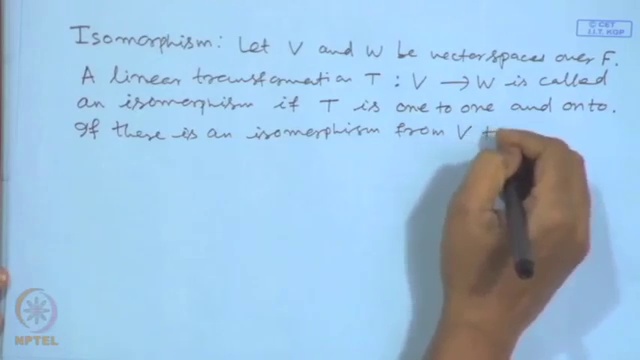 © CET
I.I.T. KGP
Isomorphism: Let V and W be vector spaces over F.
A linear transformation T : V → W is called
an isomorphism if T is one to one and onto.
If there is an isomorphism from V t
NPTEL